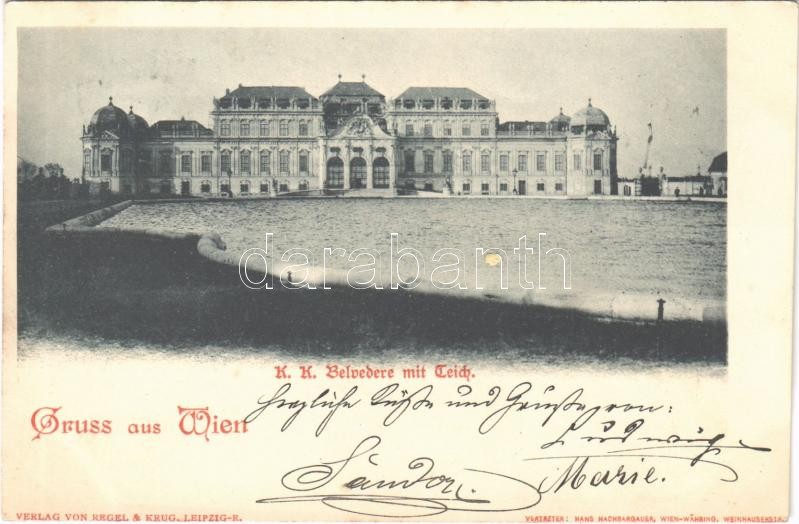 darabanth
K. K. Belvedere mit Teich.
Gruss aus Wien
herzliche Küsse und Grüsse von:
Ludwig
Sándor. Marie.
VERLAG VON REGEL & KRUG, LEIPZIG-R.
VERTRETER: HANS NACHBARGAUER, WIEN-WÄHRING, WEINHAUSERSTR.